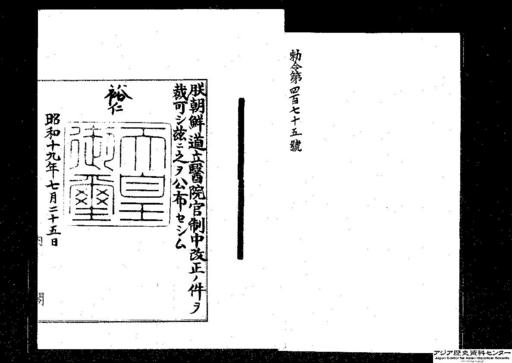 勅令第四百七十五號
朕朝鮮道立醫院官制中改正ノ件ヲ
裁可シ玆ニ之ヲ公布セシム
裕仁
天皇御璽
昭和十九年七月二十五日
内閣
アジア歴史資料センター
Japan Center for Asian Historical Records